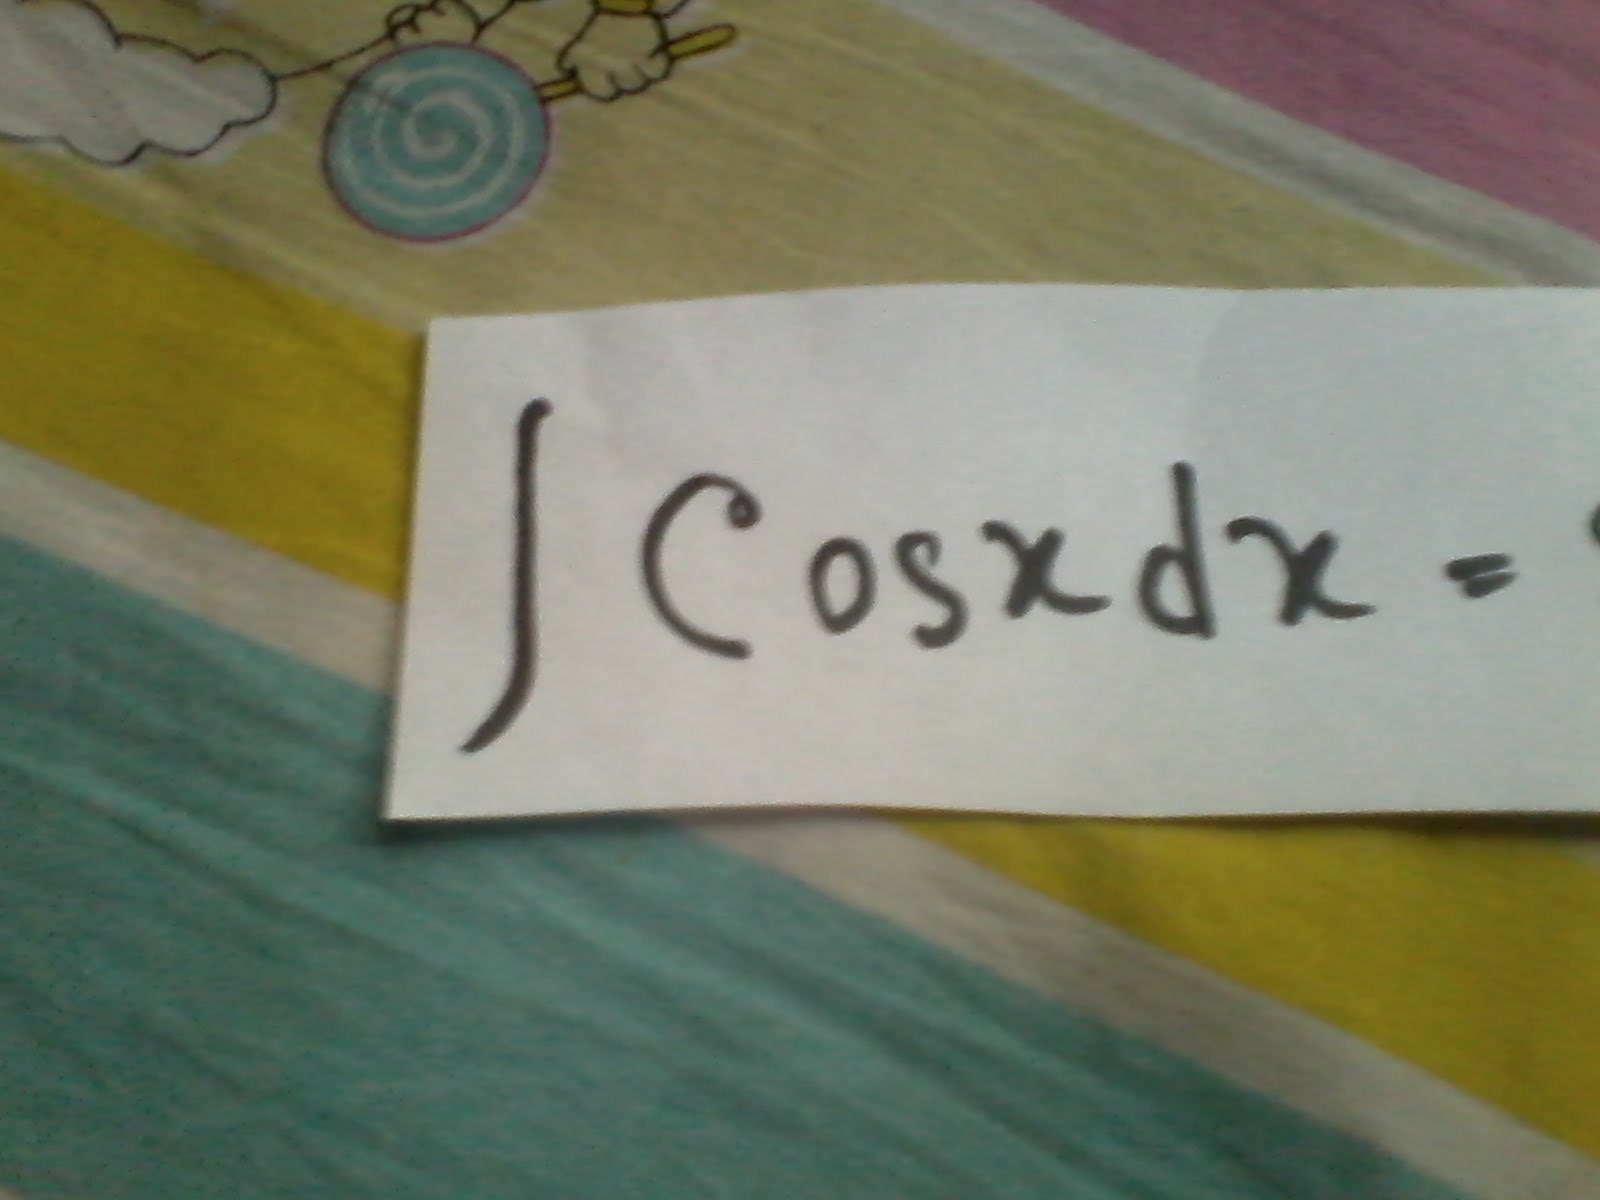 ∫ Cosx dx =